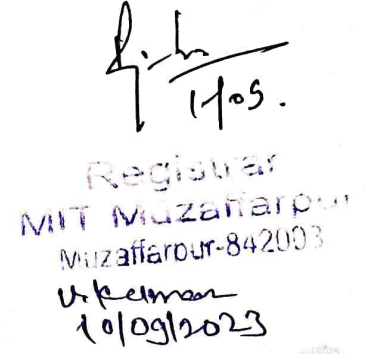 1/09.
Registrar
MIT Muzaffarpur
Muzaffarpur-842003
V. Kumar
10/09/2023